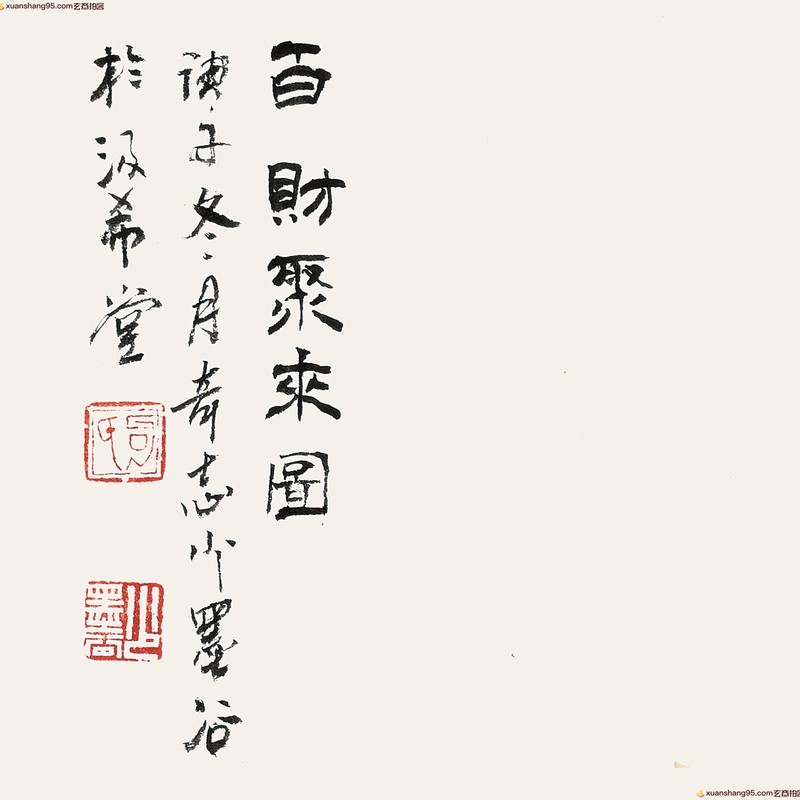 xuanshang95.com玄商拍客
百財聚來圖
庚子冬月奇志 墨谷
於汲希堂
墨谷
xuanshang95.com玄商拍客